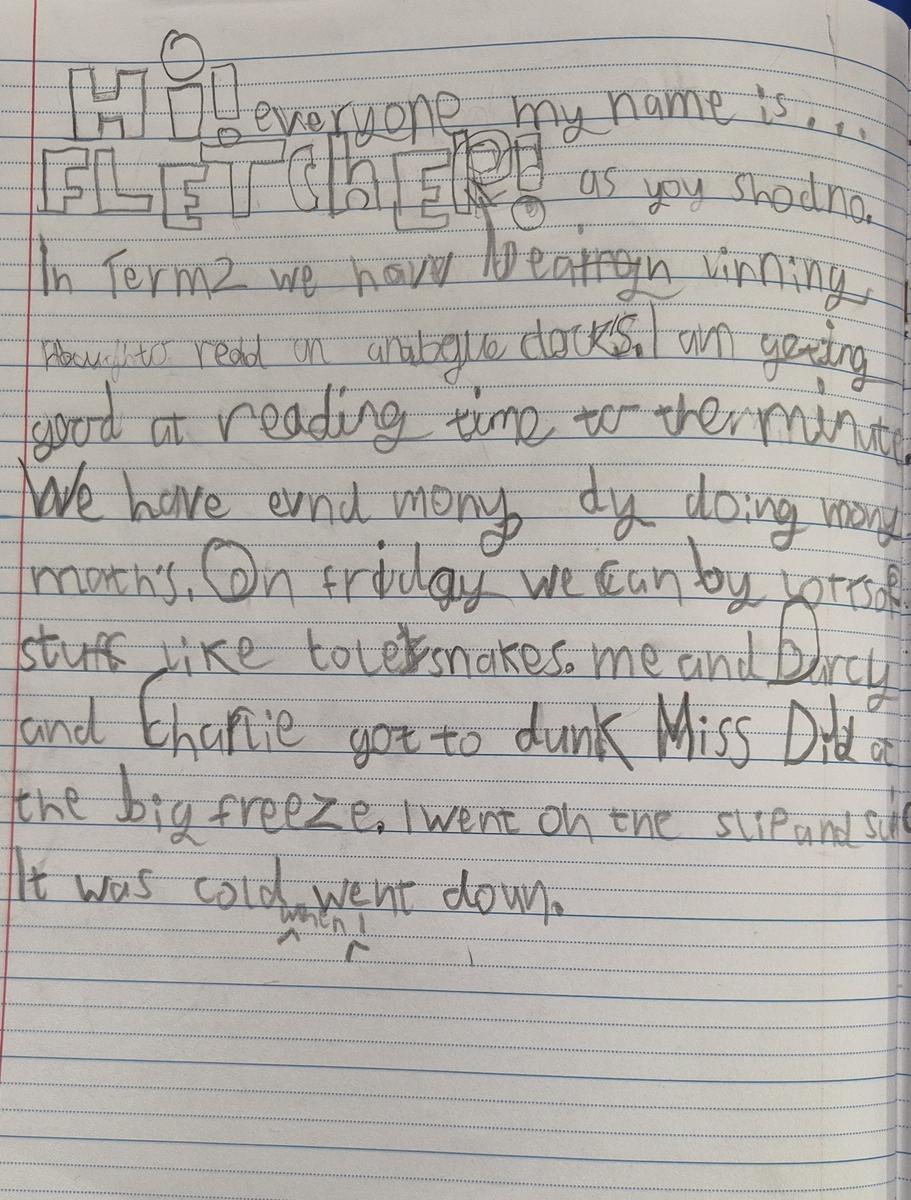 Hi! everyone my name is...
FLETChER! as you shodno.
In Term2 we have been virning
how to read on analogue clock's. I am geting
good at reading time to the minute.
We have evnd mony dy doing mony
math's. On friday we can by lotts of
stuff like tolet snakes. me and Darcy
and Charlie got to dunk Miss at
the big freeze. I went on the slip and
It was cold went down.
when I